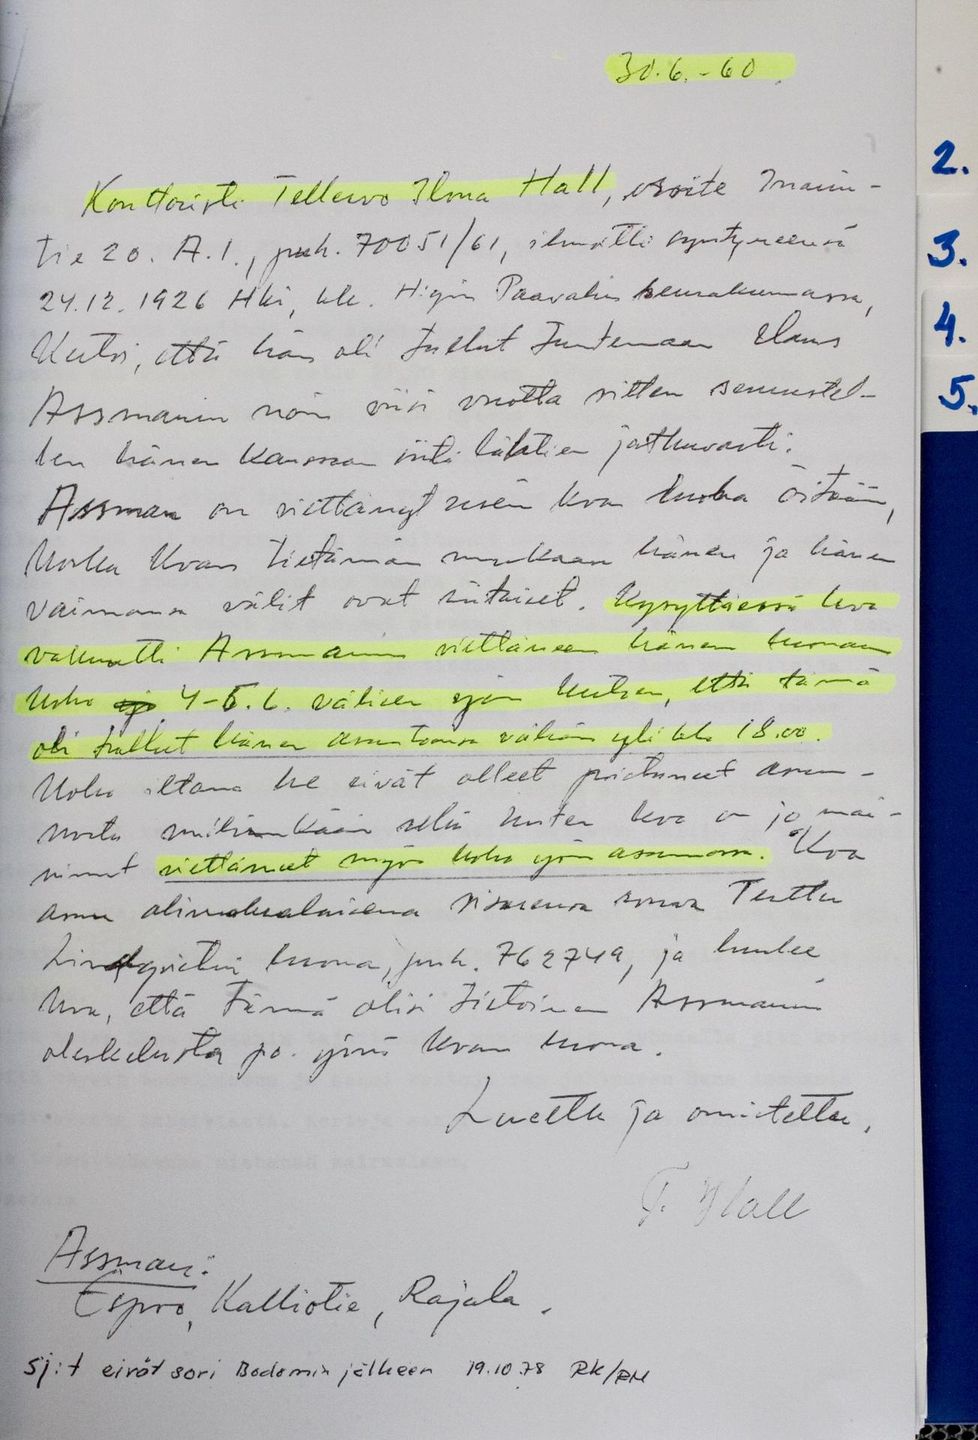 30.6.-60
2.
3.
4.
5.
Konttoristi Tellervo Ilma Hall, osoite Inarin-
tie 20. A.1., puh. 70051/61, ilmoitti syntyneensä
24.12.1926 Hki, kk. H:gin Paavalin seurakunnassa,
Kertoi, että hän oli tullut tuntemaan Hans
Assmanin noin viisi vuotta sitten seurustel-
len hänen kanssaan siitä lähtien jatkuvasti.
Assman on viettänyt usein kvan luona öitään,
koska kvan tietämän mukaan hänen ja hänen
vaimonsa välit ovat riitaiset. Kysyttäessä kva
vakuutti Assmanin viettäneen hänen luonaan
koko 4-5.6. välisen yön kertoen, että tämä
oli tullut hänen asuntoonsa vähän yli klo 18.00.
Koko iltana he eivät olleet poistuneet asun-
nosta mihinkään sekä kuten kva on jo mai-
ninnut viettäneet myös koko yön asunnossa. Kva
asuu alivuokralaisena sisarensa rouva Terttu
Lindqvistin luona, puh. 762749, ja luulee
kva, että tämä olisi tietoinen Assmanin
oleskelusta po. yönä kvan luona.
Luettu ja omistettu,
T. Hall
Assman:
Espoo, Kalliotie, Rajala.
Sj:t eivät sovi Bodomin jälkeen 19.10.78 RK/RM